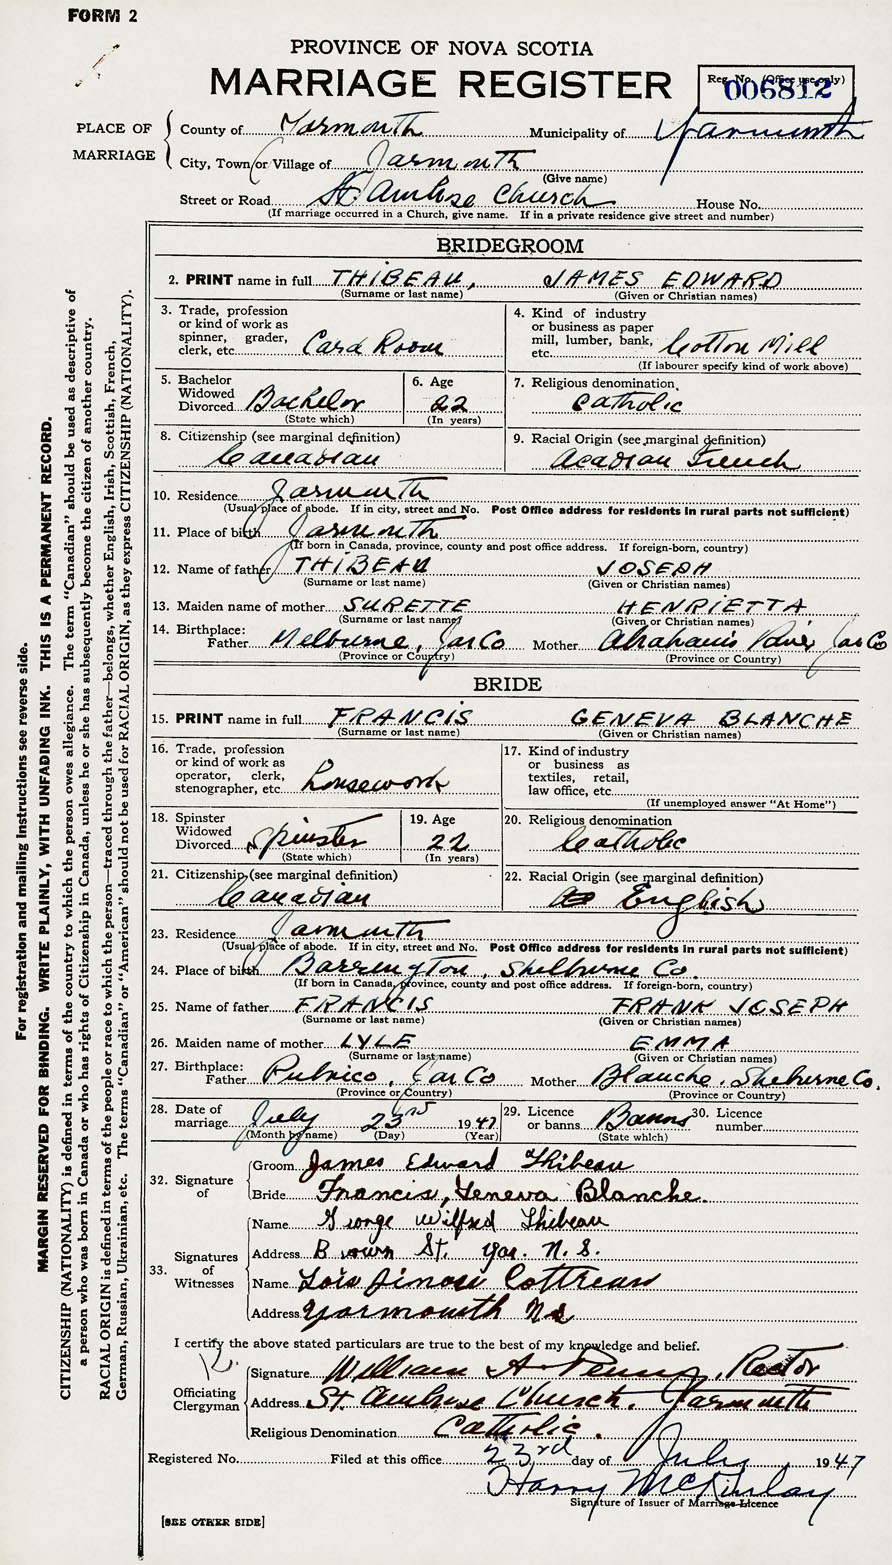 FORM 2
PROVINCE OF NOVA SCOTIA
MARRIAGE REGISTER
Reg. No. (Office use only)
006812
PLACE OF MARRIAGE
County of Yarmouth Municipality of Yarmouth
City, Town or Village of Yarmouth
(Give name)
Street or Road St. Ambrose Church House No.
(If marriage occurred in a Church, give name. If in a private residence give street and number)
BRIDEGROOM
2. PRINT name in full THIBEAU, JAMES EDWARD
(Surname or last name) (Given or Christian names)
3. Trade, profession or kind of work as spinner, grader, clerk, etc. Card Room
4. Kind of industry or business as paper mill, lumber, bank, etc. Cotton Mill
(If labourer specify kind of work above)
5. Bachelor Widowed Divorced Bachelor
(State which)
6. Age 22
(In years)
7. Religious denomination Catholic
8. Citizenship (see marginal definition) Canadian
9. Racial Origin (see marginal definition) Acadian French
10. Residence Yarmouth
(Usual place of abode. If in city, street and No. Post Office address for residents in rural parts not sufficient)
11. Place of birth Yarmouth
(If born in Canada, province, county and post office address. If foreign-born, country)
12. Name of father THIBEAU JOSEPH
(Surname or last name) (Given or Christian names)
13. Maiden name of mother SURETTE HENRIETTA
(Surname or last name) (Given or Christian names)
14. Birthplace: Father Melburne, Yar Co Mother Abraham's River Yar Co
(Province or Country) (Province or Country)
BRIDE
15. PRINT name in full FRANCIS GENEVA BLANCHE
(Surname or last name) (Given or Christian names)
16. Trade, profession or kind of work as operator, clerk, stenographer, etc. housework
17. Kind of industry or business as textiles, retail, law office, etc.
(If unemployed answer "At Home")
18. Spinster Widowed Divorced Spinster
(State which)
19. Age 22
(In years)
20. Religious denomination Catholic
21. Citizenship (see marginal definition) Canadian
22. Racial Origin (see marginal definition) English
23. Residence Yarmouth
(Usual place of abode. If in city, street and No. Post Office address for residents in rural parts not sufficient)
24. Place of birth Barrington, Shelburne Co.
(If born in Canada, province, county and post office address. If foreign-born, country)
25. Name of father FRANCIS FRANK JOSEPH
(Surname or last name) (Given or Christian names)
26. Maiden name of mother LYLE EMMA
(Surname or last name) (Given or Christian names)
27. Birthplace: Father Pubnico, Yar Co Mother Blanche, Shelburne Co.
(Province or Country) (Province or Country)
28. Date of marriage July 23rd 1947
(Month by name) (Day) (Year)
29. Licence or banns Banns
(State which)
30. Licence number
32. Signature of
Groom James Edward Thibeau
Bride Francis, Geneva Blanche.
33. Signatures of Witnesses
Name George Wilfred Thibeau
Address Brown St. Yar. N.S.
Name Lois Cottreau
Address Yarmouth N.S
I certify the above stated particulars are true to the best of my knowledge and belief.
Officiating Clergyman
Signature William A Penny, Rector
Address St. Ambrose Church. Yarmouth
Religious Denomination Catholic.
Registered No. Filed at this office 23rd day of July 1947
Harry McKinlay
Signature of Issuer of Marriage Licence
[SEE OTHER SIDE]
For registration and mailing instructions see reverse side.
MARGIN RESERVED FOR BINDING. WRITE PLAINLY, WITH UNFADING INK. THIS IS A PERMANENT RECORD.
CITIZENSHIP (NATIONALITY) is defined in terms of the country to which the person owes allegiance. The term "Canadian" should be used as descriptive of
a person who was born in Canada or who has rights of Citizenship in Canada, unless he or she has subsequently become the citizen of another country.
RACIAL ORIGIN is defined in terms of the people or race to which the person—traced through the father—belongs, whether English, Irish, Scottish, French,
German, Russian, Ukrainian, etc. The terms "Canadian" or "American" should not be used for RACIAL ORIGIN, as they express CITIZENSHIP (NATIONALITY).